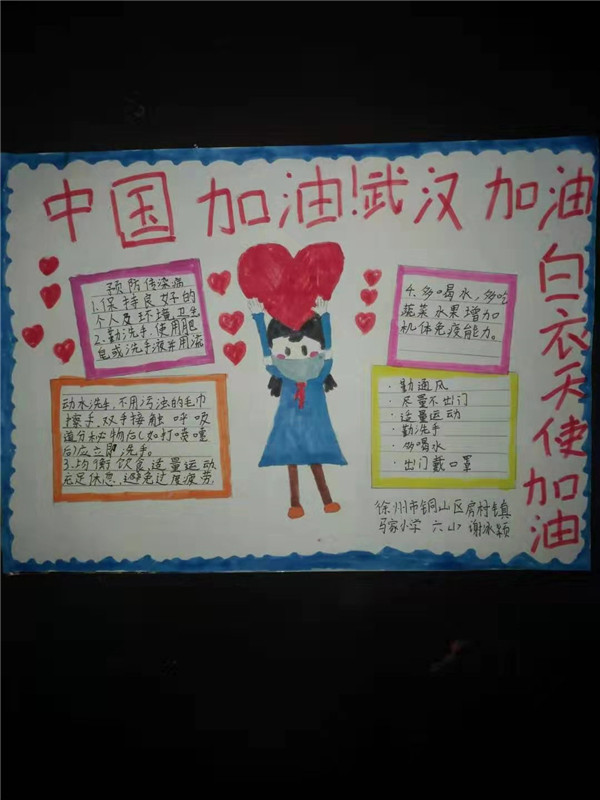 中国加油!武汉加油
白衣天使加油
预防传染病
1.保持良好的
个人及环境卫生
2.勤洗手.使用肥
皂或洗手液并用流
动水洗手,不用污浊的毛巾
擦手,双手接触呼吸
道分秘物后(如打喷嚏
后)应立即洗手。
3.均衡饮食.适量运动
充足休息.避免过度疲劳.
4.多喝水,多吃
蔬菜水果增加
机体免疫能力。
·勤通风
·尽量不出门
·适量运动
·勤洗手
·多喝水
·出门戴口罩
徐州市铜山区房村镇
马家小学 六山 谢冰颖